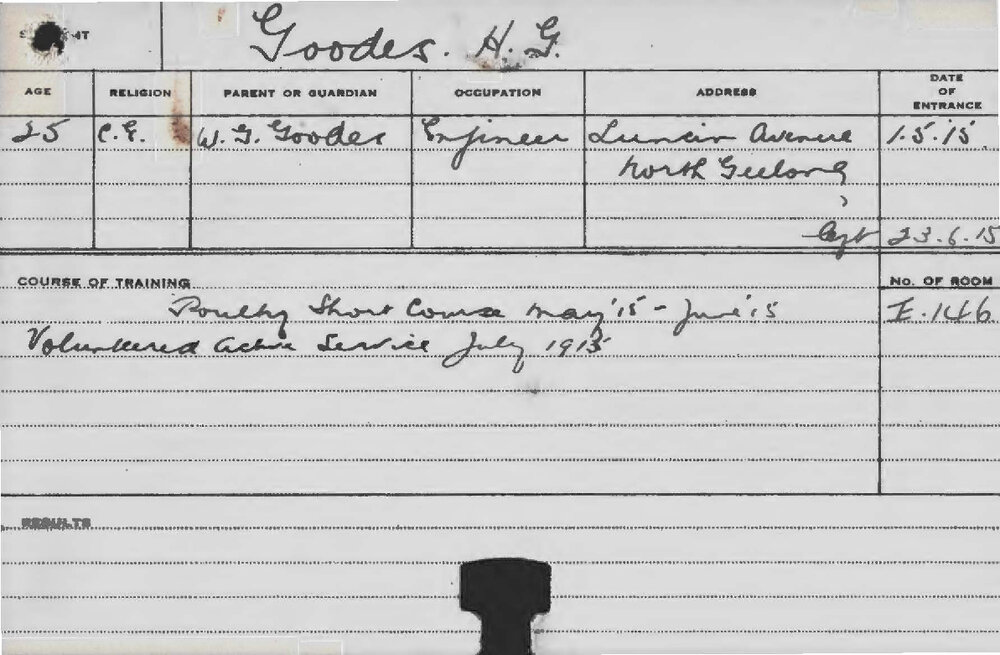 Goodes. H. G.
AGE RELIGION PARENT OR GUARDIAN OCCUPATION ADDRESS DATE OF ENTRANCE
25 C.E. W. G. Goodes Engineer Avenue 1.5.15
North Geelong
23.6.15
COURSE OF TRAINING No. OF ROOM
Poultry Short Course May '15 - June '15 I.146
Volunteered Active Service July 1915
RESULTS